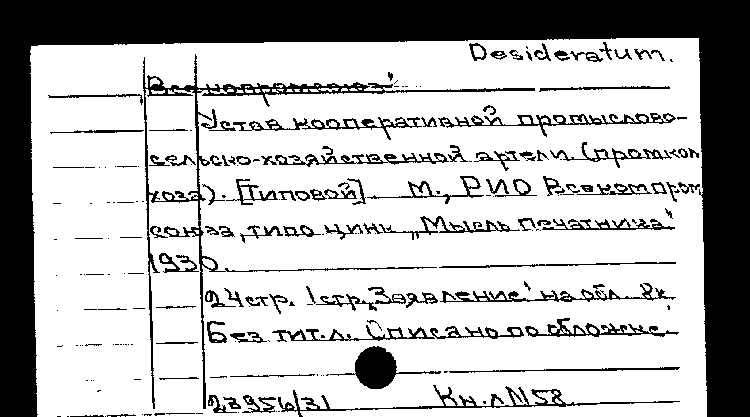 Desideratum.
Всекопромсоюз
Устав кооперативной промыслово-
сельско-хозяйственной артели (промкол
хоза). [Типовой]. М., РИО Всекомпром
союза, типо цинк „Мысль печатника"
1930.
24 стр. 1 стр. „Заявление" на обл. 8к.
Без тит.л. Списано по обложке.
23956/31 Кн.л N58